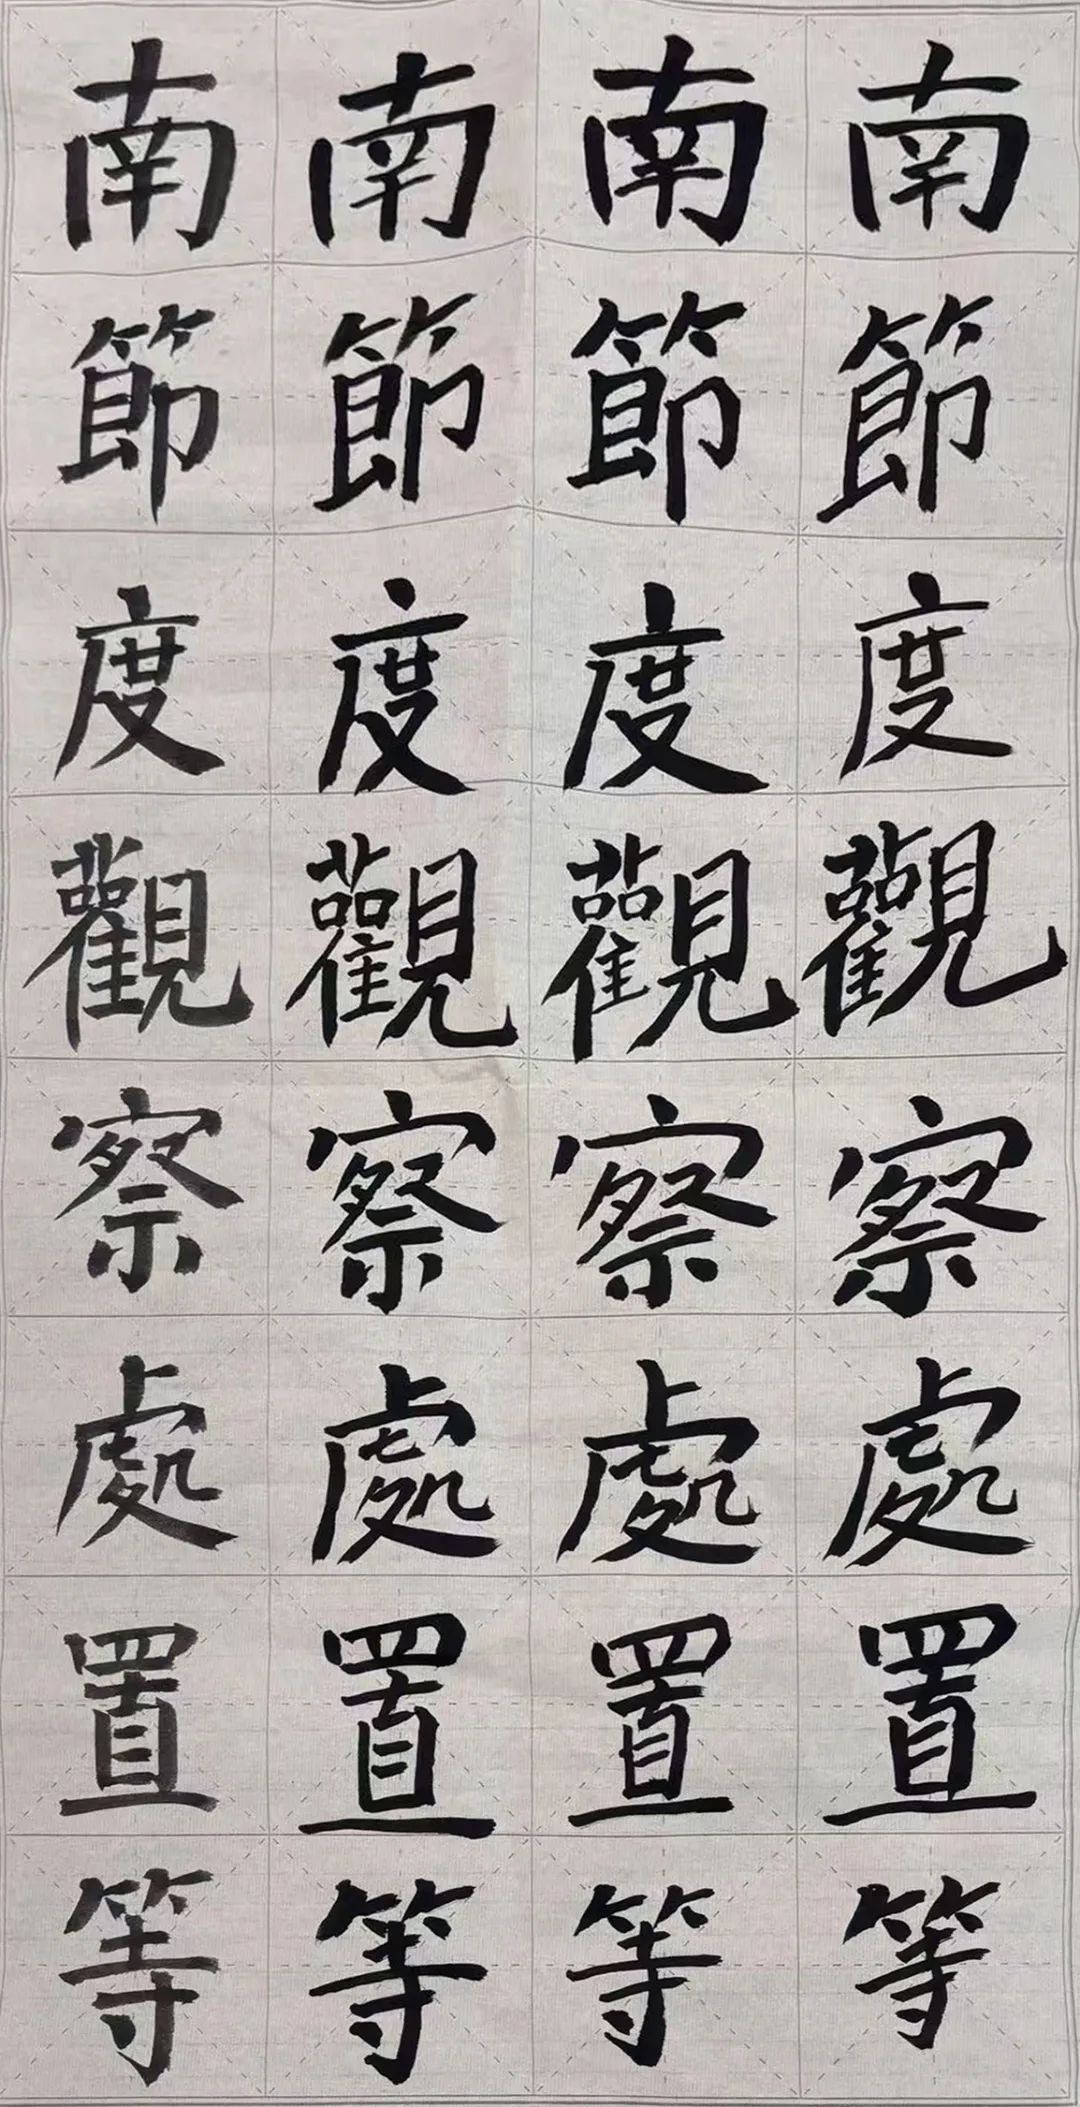 南南南南
節節節節
度度度度
觀觀觀觀
察察察察
處處處處
置置置置
等等等等